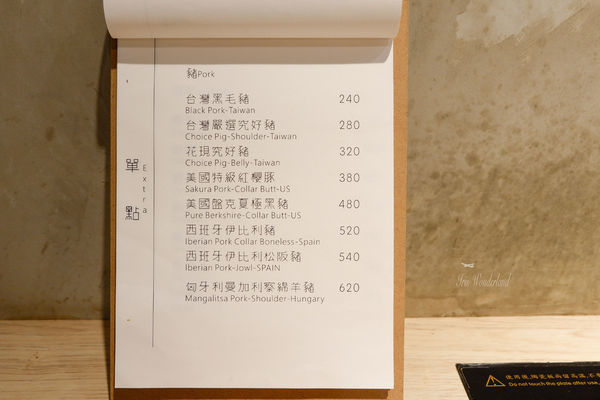 豬Pork
台灣黑毛豬 240
Black Pork-Taiwan
台灣嚴選究好豬 280
Choice Pig-Shoulder-Taiwan
花現究好豬 320
Choice Pig-Belly-Taiwan
美國特級紅櫻豚 380
Sakura Pork-Collar Butt-US
美國盤克夏極黑豬 480
Pure Berkshire-Collar Butt-US
西班牙伊比利豬 520
Iberian Pork Collar Boneless-Spain
西班牙伊比利松阪豬 540
Iberian Pork-Jowl-SPAIN
匈牙利曼加利察綿羊豬 620
Mangalitsa Pork-Shoulder-Hungary
單點
Extra
Iris Wonderland
Do not touch the plate after use,